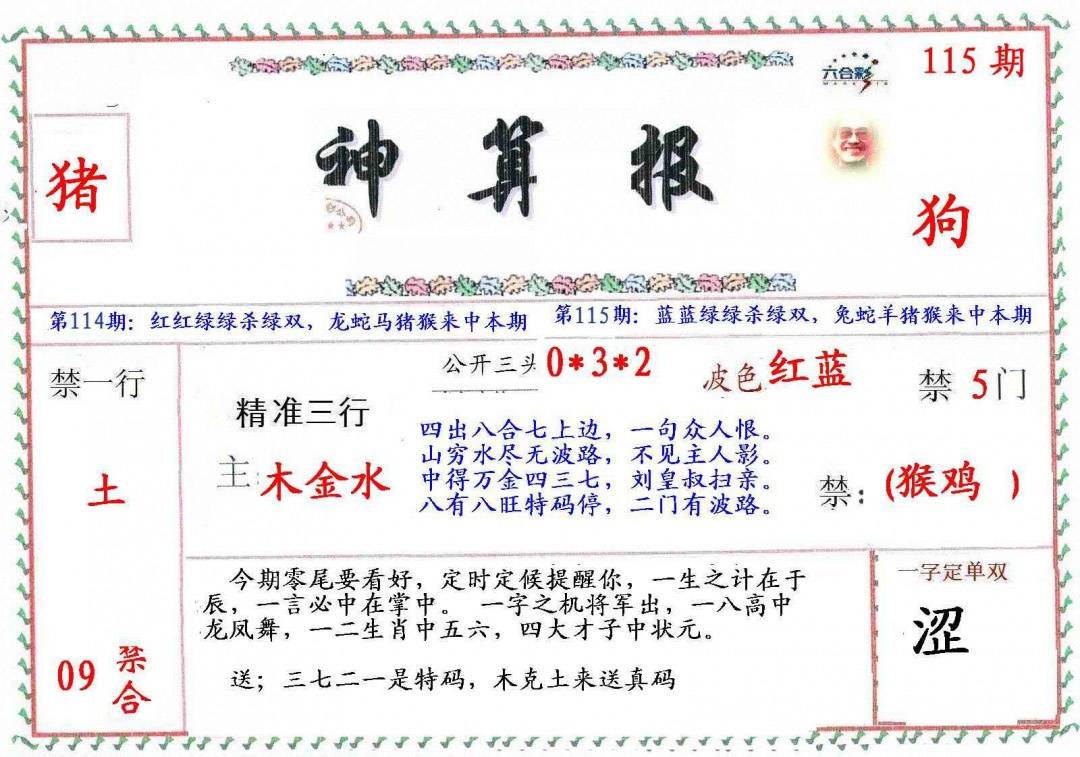 115 期
六合彩
神算报
猪
狗
第114期：红红绿绿杀绿双，龙蛇马猪猴来中本期
第115期：蓝蓝绿绿杀绿双，兔蛇羊猪猴来中本期
禁一行
土
09 禁合
公开三头 0*3*2
波色 红蓝
禁 5门
精准三行
主:木金水
四出八合七上边，一句众人恨。
山穷水尽无波路，不见主人影。
中得万金四三七，刘皇叔扫亲。
八有八旺特码停，二门有波路。
禁：(猴鸡 )
今期零尾要看好，定时定候提醒你，一生之计在于
辰，一言必中在掌中。 一字之机将军出，一八高中
龙凤舞，一二生肖中五六，四大才子中状元。
送；三七二一是特码，木克土来送真码
一字定单双
涩